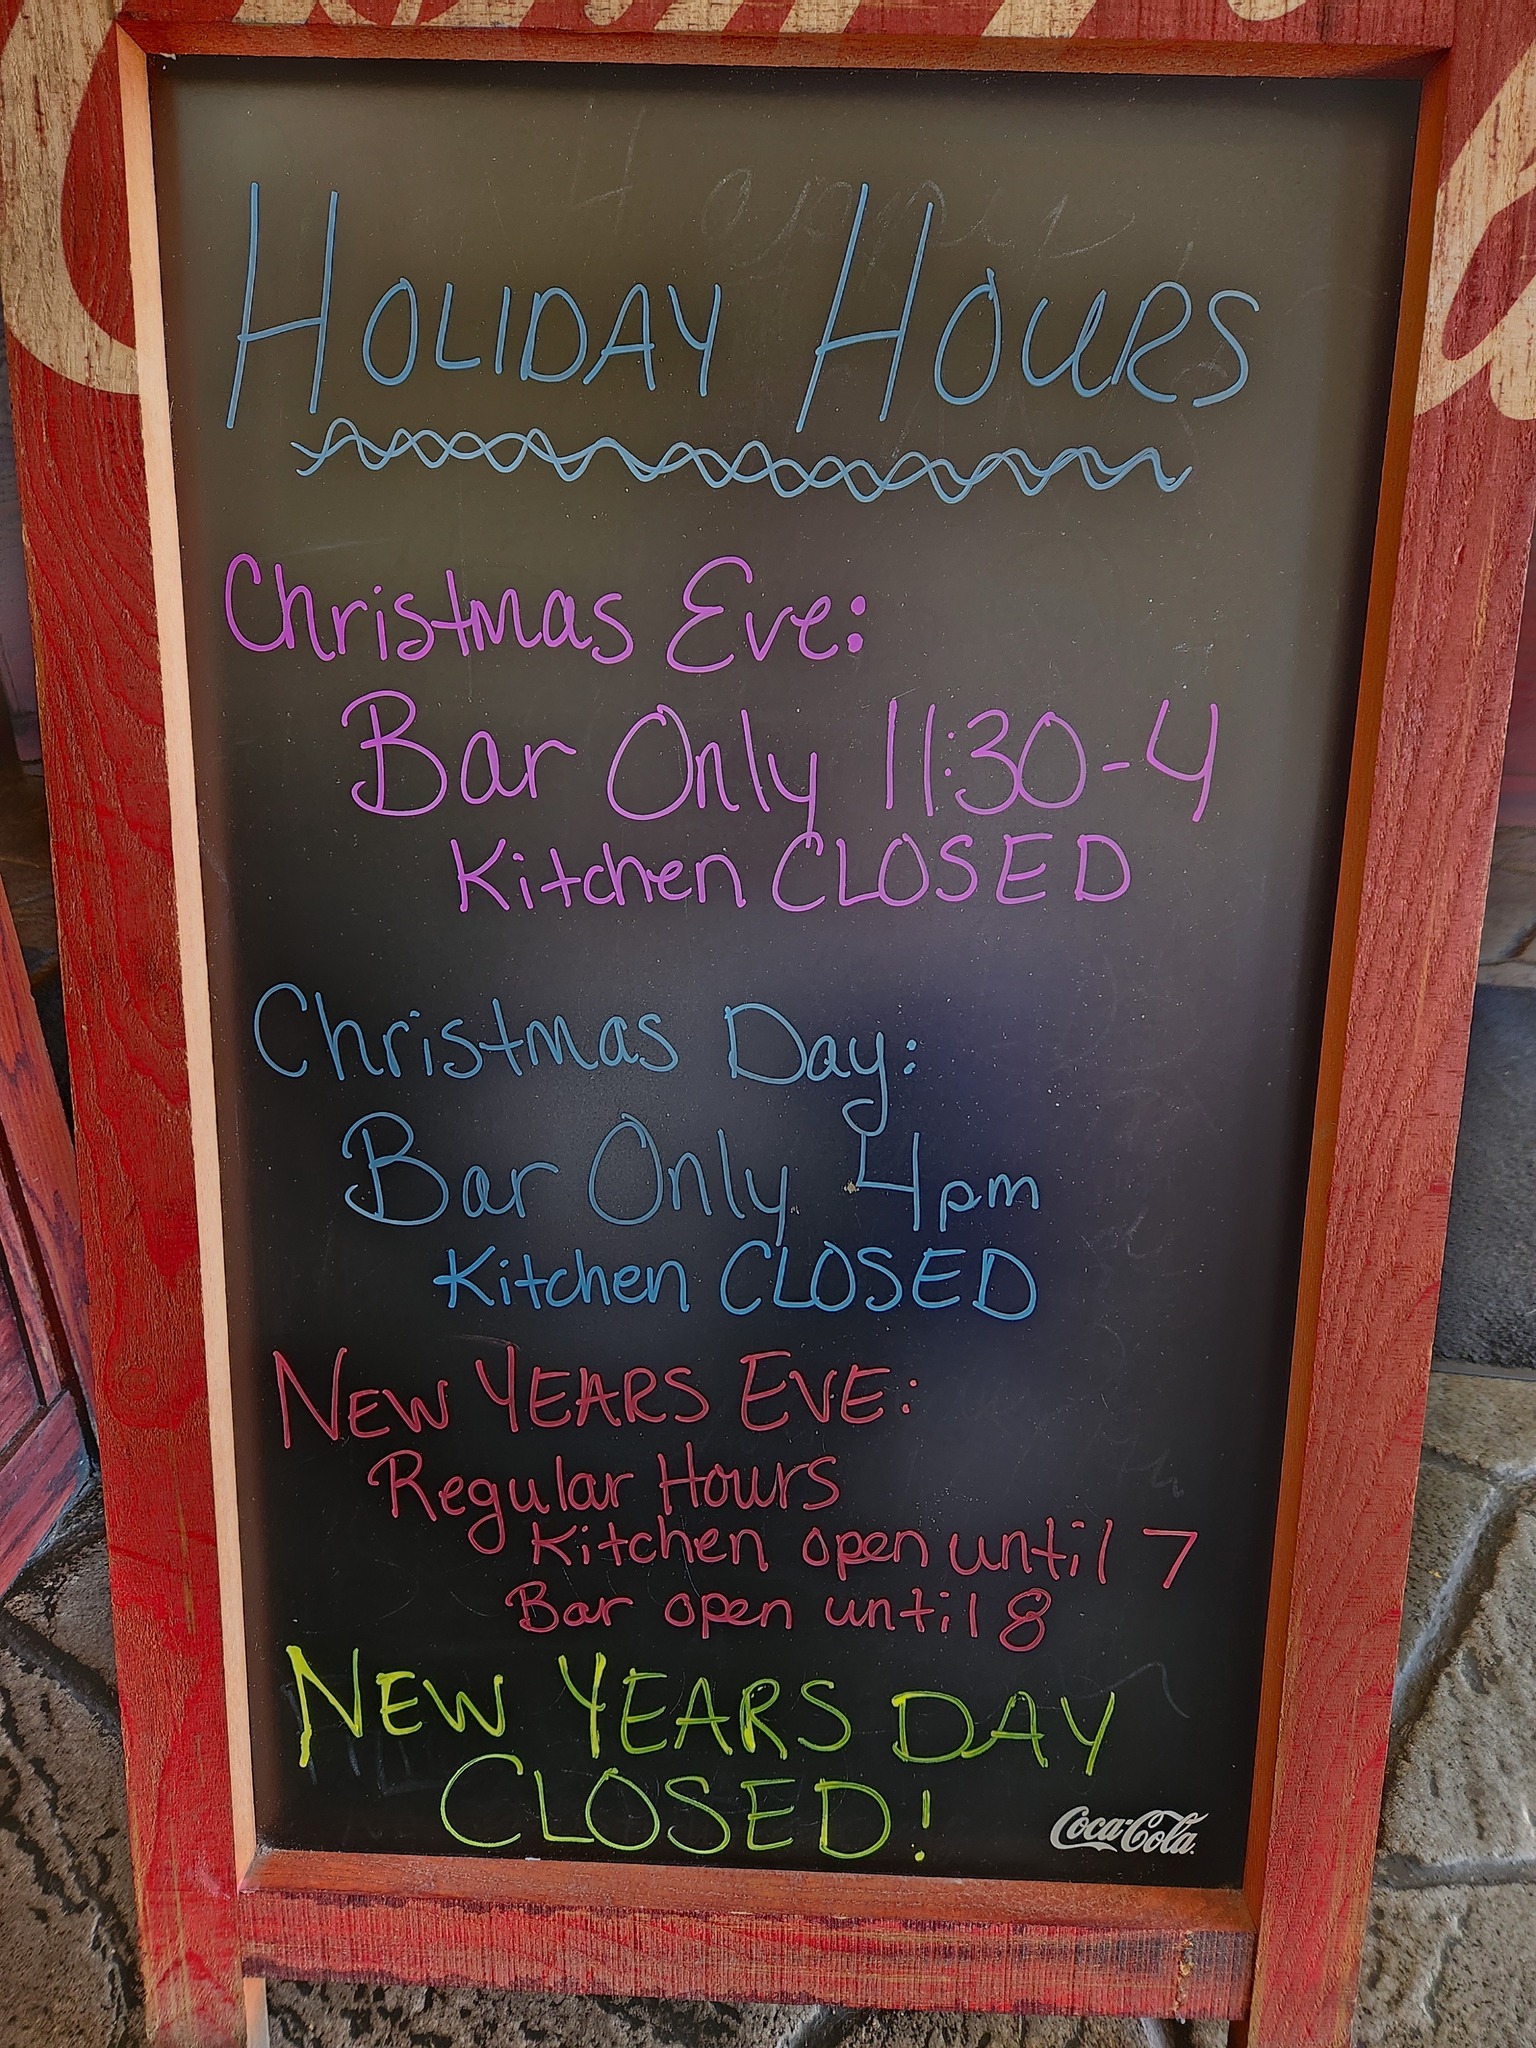 HOLIDAY HOURS
Christmas Eve:
Bar Only 11:30-4
Kitchen CLOSED
Christmas Day:
Bar Only 4pm
Kitchen CLOSED
NEW YEARS EVE:
Regular Hours
Kitchen open until 7
Bar open until 8
NEW YEARS DAY
CLOSED!
Coca-Cola